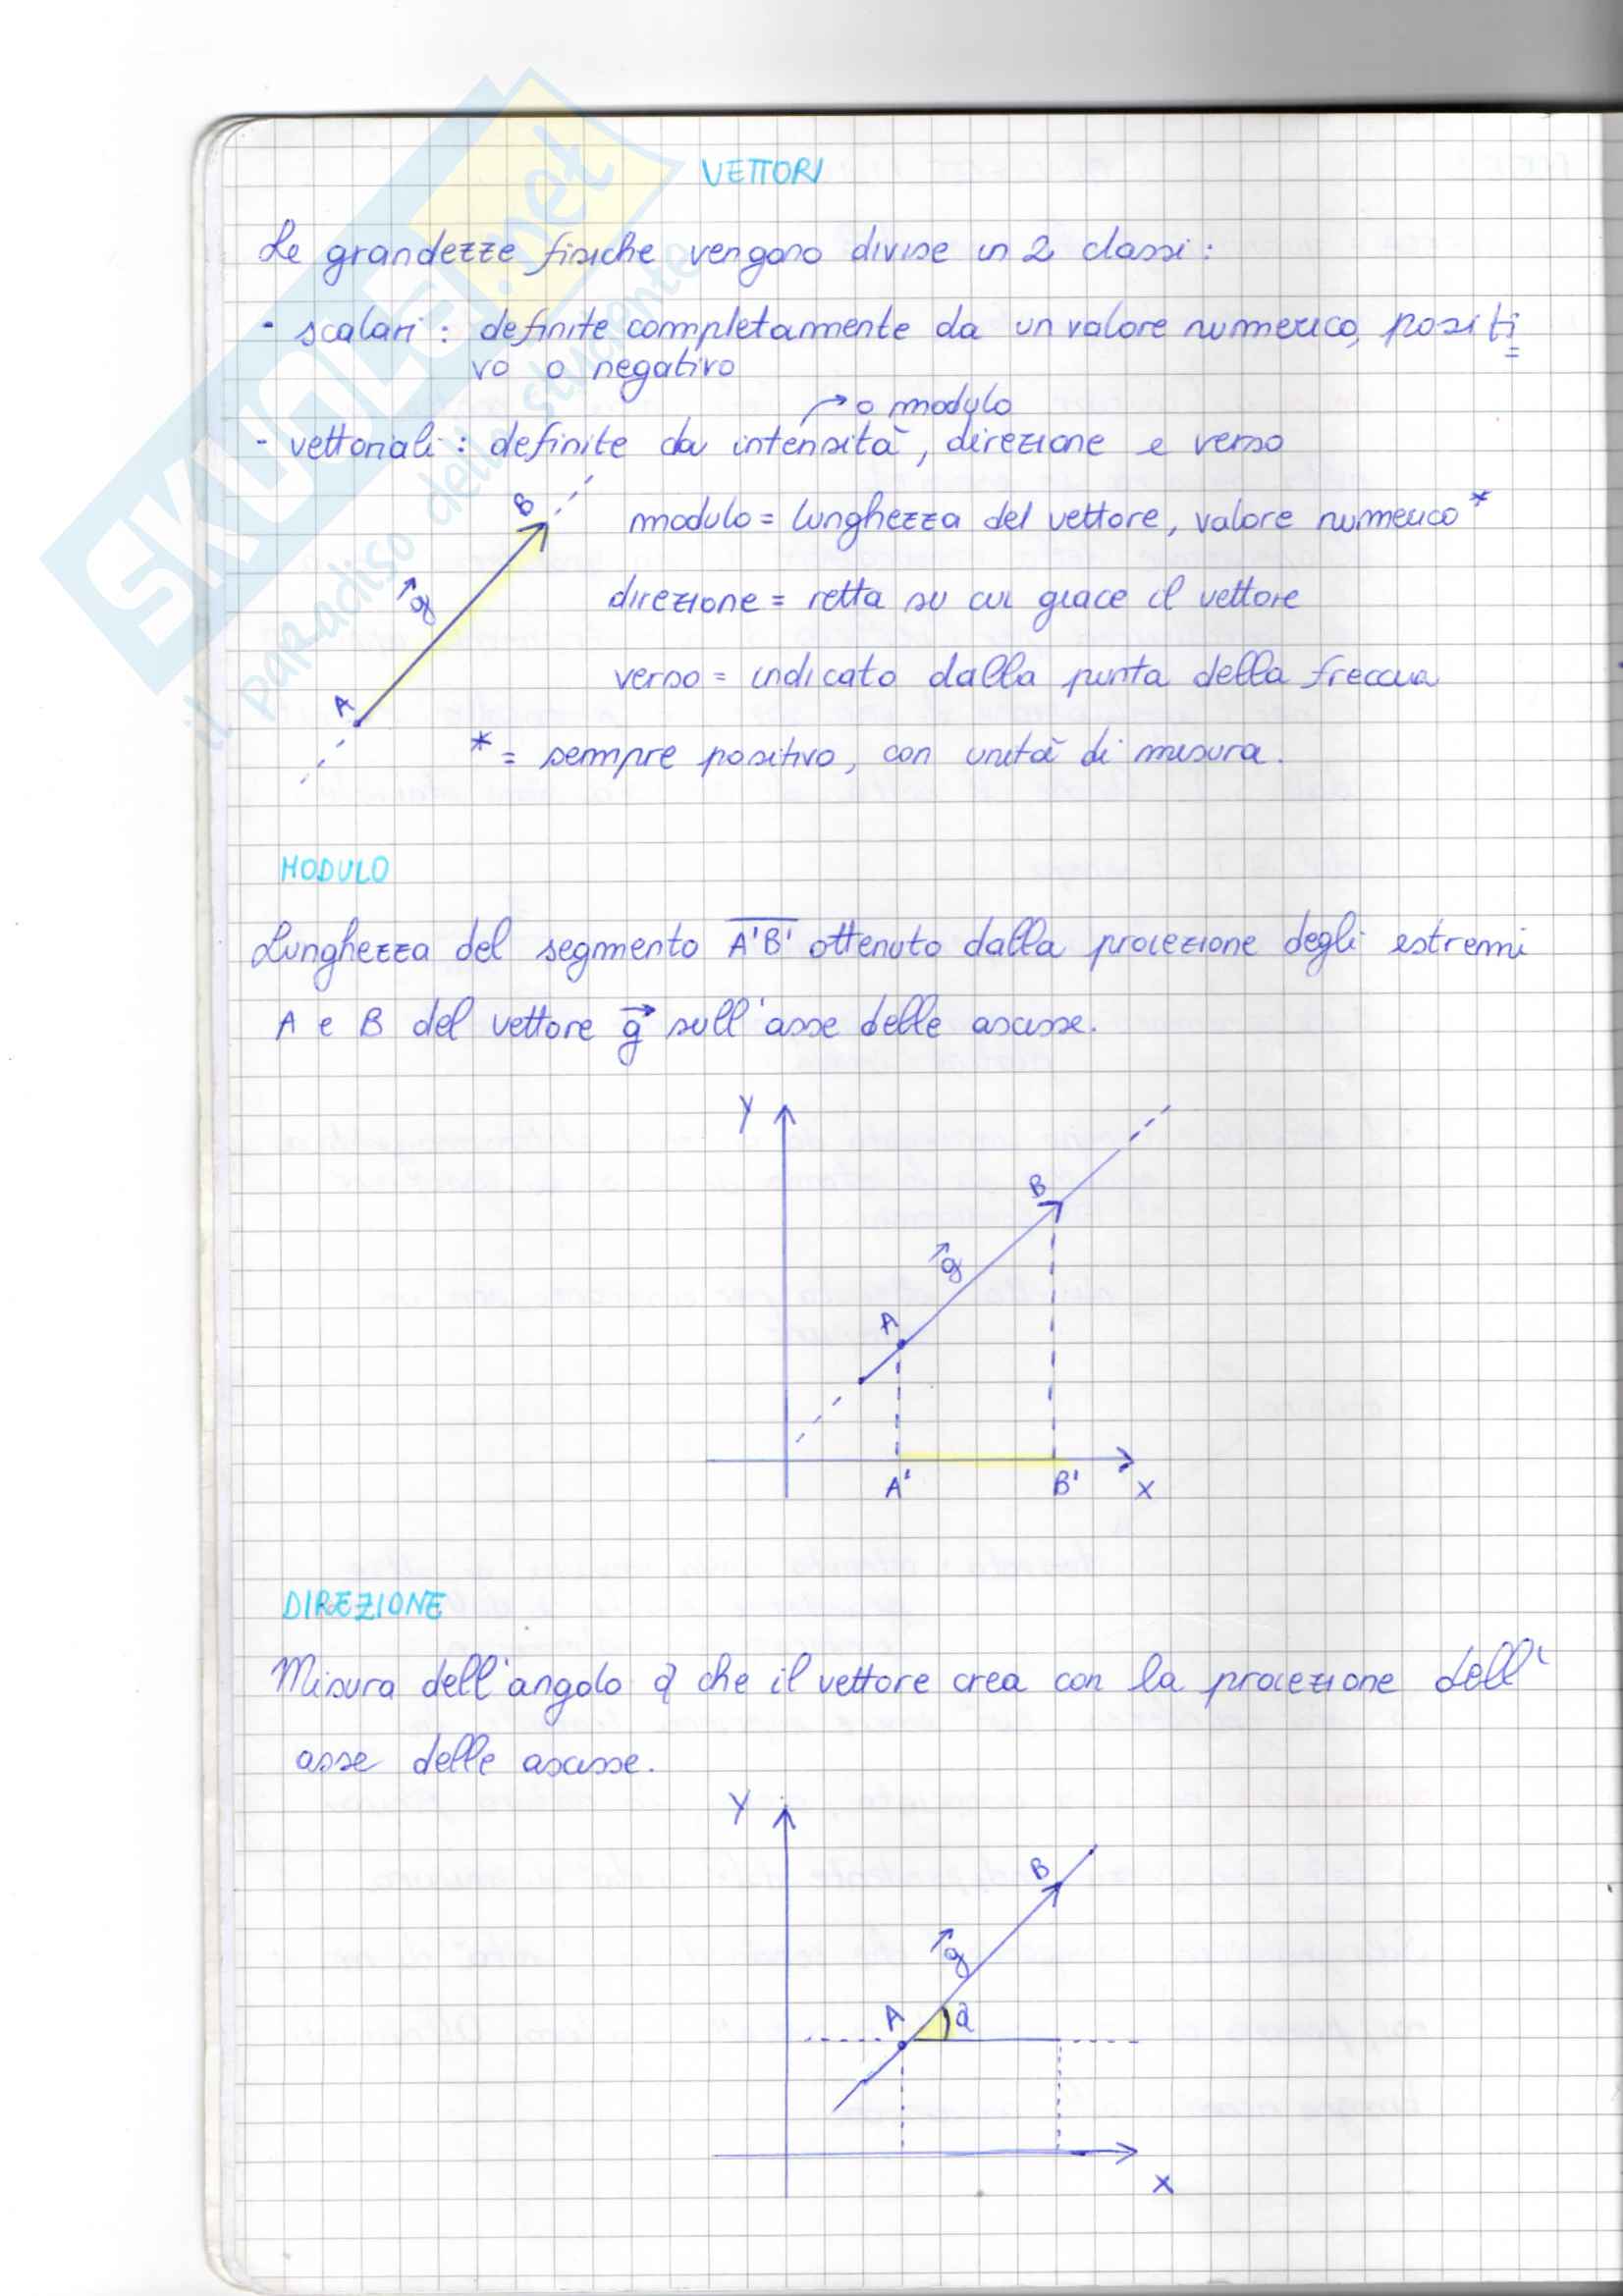 VETTORI
Le grandezze fisiche vengono divise in 2 classi:
- scalari: definite completamente da un valore numerico, positi
vo o negativo
o modulo
- vettoriali: definite da intensità, direzione e verso
B
modulo = lunghezza del vettore, valore numerico*
g
direzione = retta su cui giace il vettore
verso = indicato dalla punta della freccia
A
* = sempre positivo, con unità di misura.
MODULO
Lunghezza del segmento A'B' ottenuto dalla proiezione degli estremi
A e B del vettore g sull'asse delle ascisse.
Y
B
g
A
A' B' X
DIREZIONE
Misura dell'angolo α che il vettore crea con la proiezione dell'
asse delle ascisse.
Y
B
g
A α
X
SKUOLA.net
il paradiso dello studente